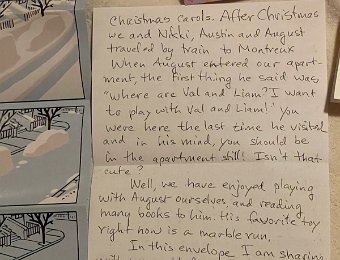 Christmas Carols. After Christmas
we and Nikki, Austin and August
traveled by train to Montreux
When August entered our apart-
ment, the first thing he said was,
"Where are Val and Liam? I want
to play with Val and Liam!" You
were here the last time he visited
and in his mind, you should be
in the apartment still! Isn't that
cute?
Well, we have enjoyed playing
with August ourselves, and reading
many books to him. His favorite toy
right now is a marble run.
In this envelope I am sharing